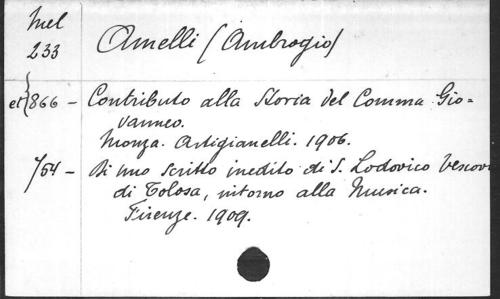 Mel
233
Amelli (Ambrogio)
et 866 - Contributo alla Storia del Comma Gio=
vanneo.
Monza. Artigianelli. 1906.
754 - Di uno scritto inedito di S. Lodovico Vescovo
di Tolosa, intorno alla Musica.
Firenze. 1909.